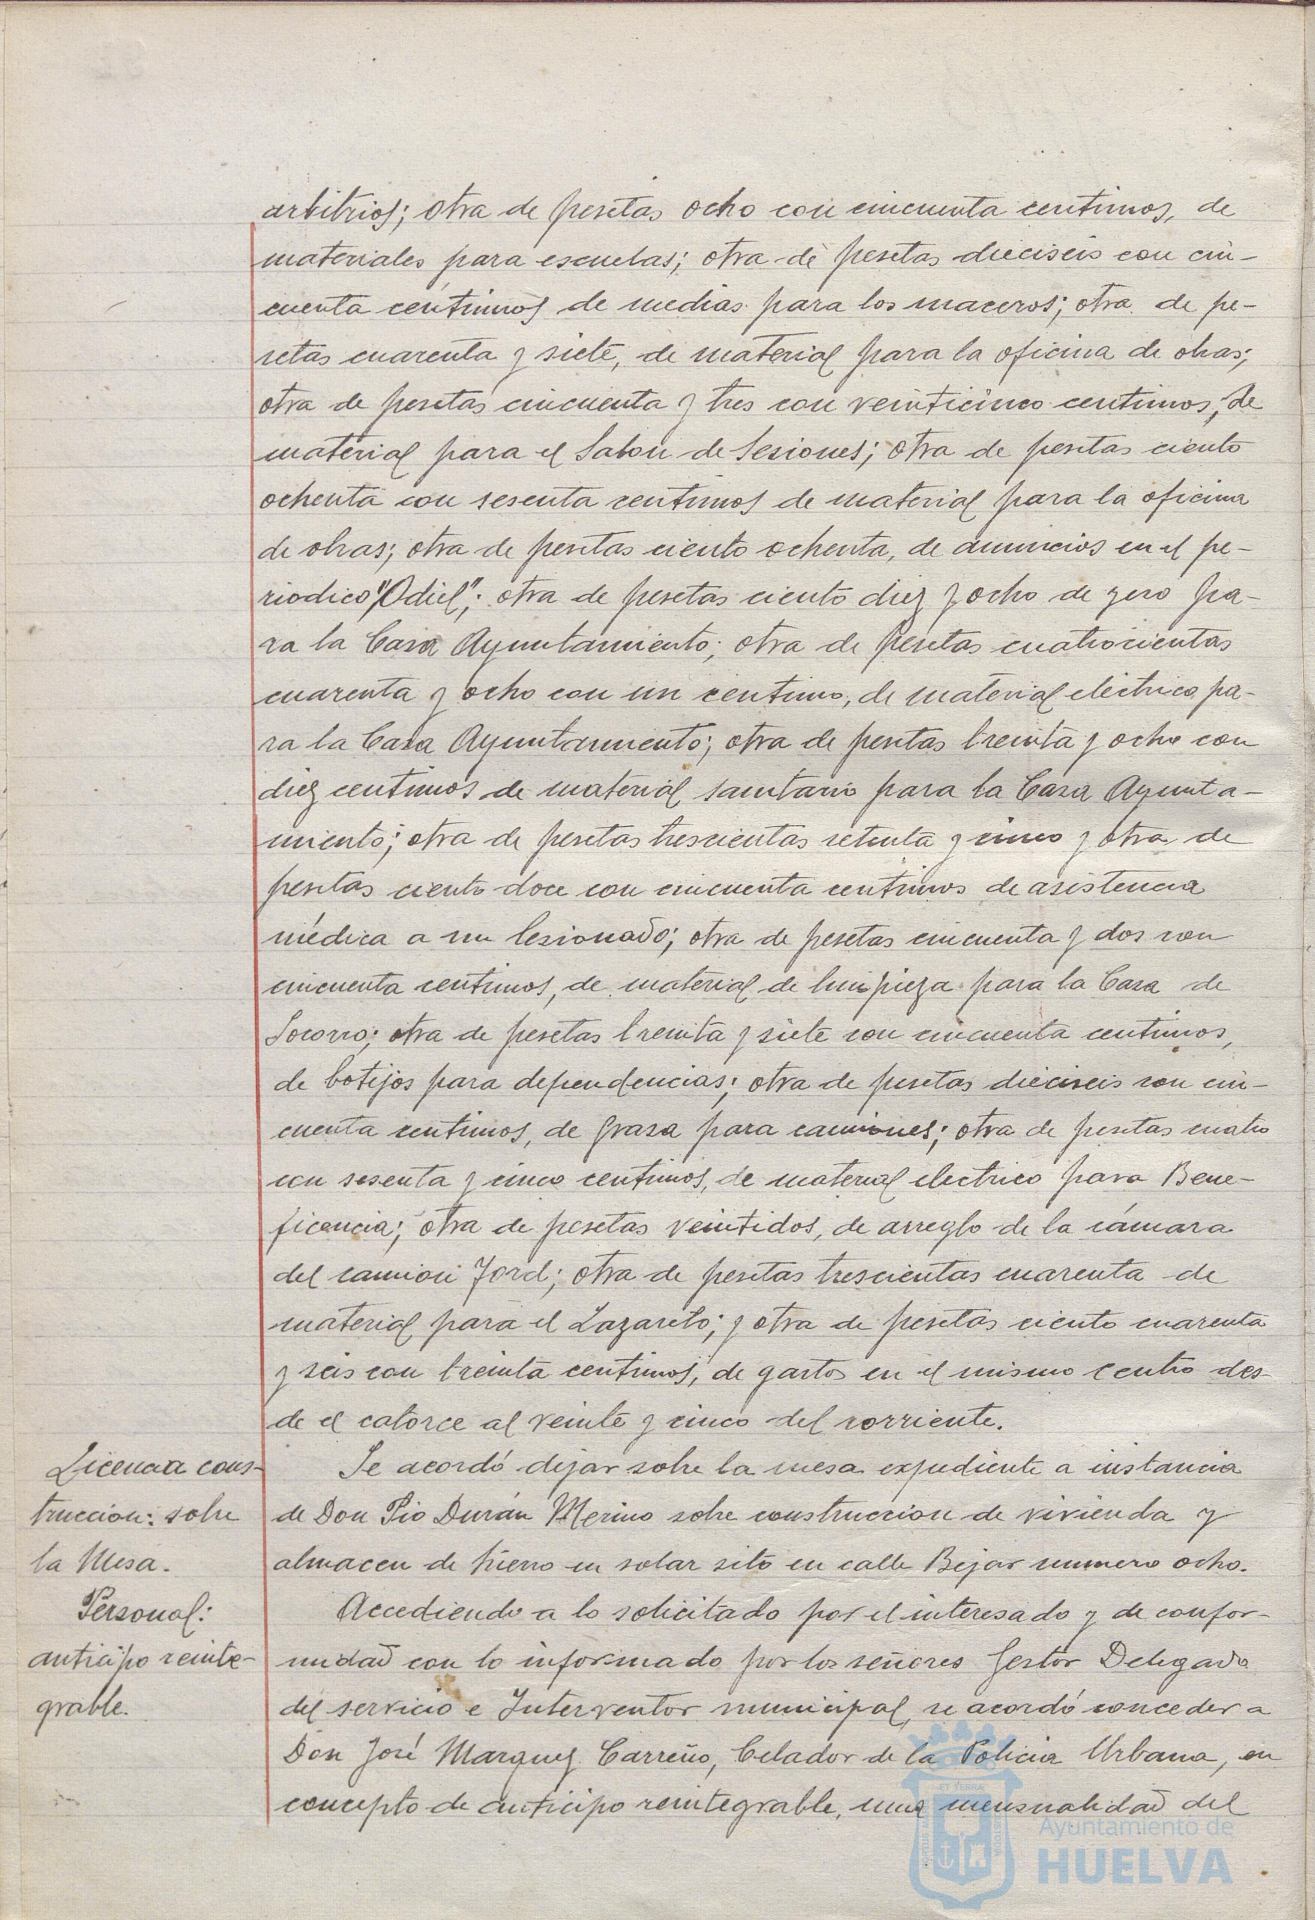 arbitrios; otra de pesetas ocho con cincuenta centimos, de
materiales para escuelas; otra de pesetas dieciseis con cin-
cuenta céntimos de medias para los maceros; otra de pe-
setas cuarenta y siete, de material para la oficina de obras;
otra de pesetas cincuenta y tres con veinticinco centimos, de
material para el Salon de Sesiones; otra de pesetas ciento
ochenta con sesenta centimos de material para la oficina
de obras; otra de pesetas ciento ochenta, de anuncios en el pe-
riodico "Odiel"; otra de pesetas ciento diez y ocho de yeso pa-
ra la Casa Ayuntamiento; otra de pesetas cuatrocientas
cuarenta y ocho con un centimo, de material electrico pa-
ra la Casa Ayuntamiento; otra de pesetas treinta y ocho con
diez centimos de material sanitario para la Casa Ayunta-
miento; otra de pesetas trescientas setenta y cinco y otra de
pesetas ciento doce con cincuenta centimos de asistencia
médica a un lesionado; otra de pesetas cincuenta y dos con
cincuenta centimos, de material de limpieza para la Casa de
Socorro; otra de pesetas treinta y siete con cincuenta centimos,
de botijos para dependencias; otra de pesetas dieciseis con cin-
cuenta centimos, de grasa para camiones; otra de pesetas cuatro
con sesenta y cinco centimos, de material electrico para Bene-
ficencia; otra de pesetas veintidos, de arreglo de la cámara
del camion Ford; otra de pesetas trescientas cuarenta de
material para el Lazareto; y otra de pesetas ciento cuarenta
y seis con treinta centimos, de gastos en el mismo Centro des-
de el catorce al veinte y cinco del corriente.
Licencia cons-
truccion: sobre
la Mesa.
Se acordó dejar sobre la mesa expediente a instancia
de Don Pio Durán Merino sobre construccion de vivienda y
almacen de hierro en solar sito en calle Bejar numero ocho.
Personal:
anticipo reinte-
grable.
Accediendo a lo solicitado por el interesado y de confor-
midad con lo informado por los señores Gestor Delegado
del servicio e Interventor municipal, se acordó conceder a
Don José Marquez Carreño, Celador de la Policia Urbana, en
concepto de anticipo reintegrable, una mensualidad del
Ayuntamiento de
HUELVA